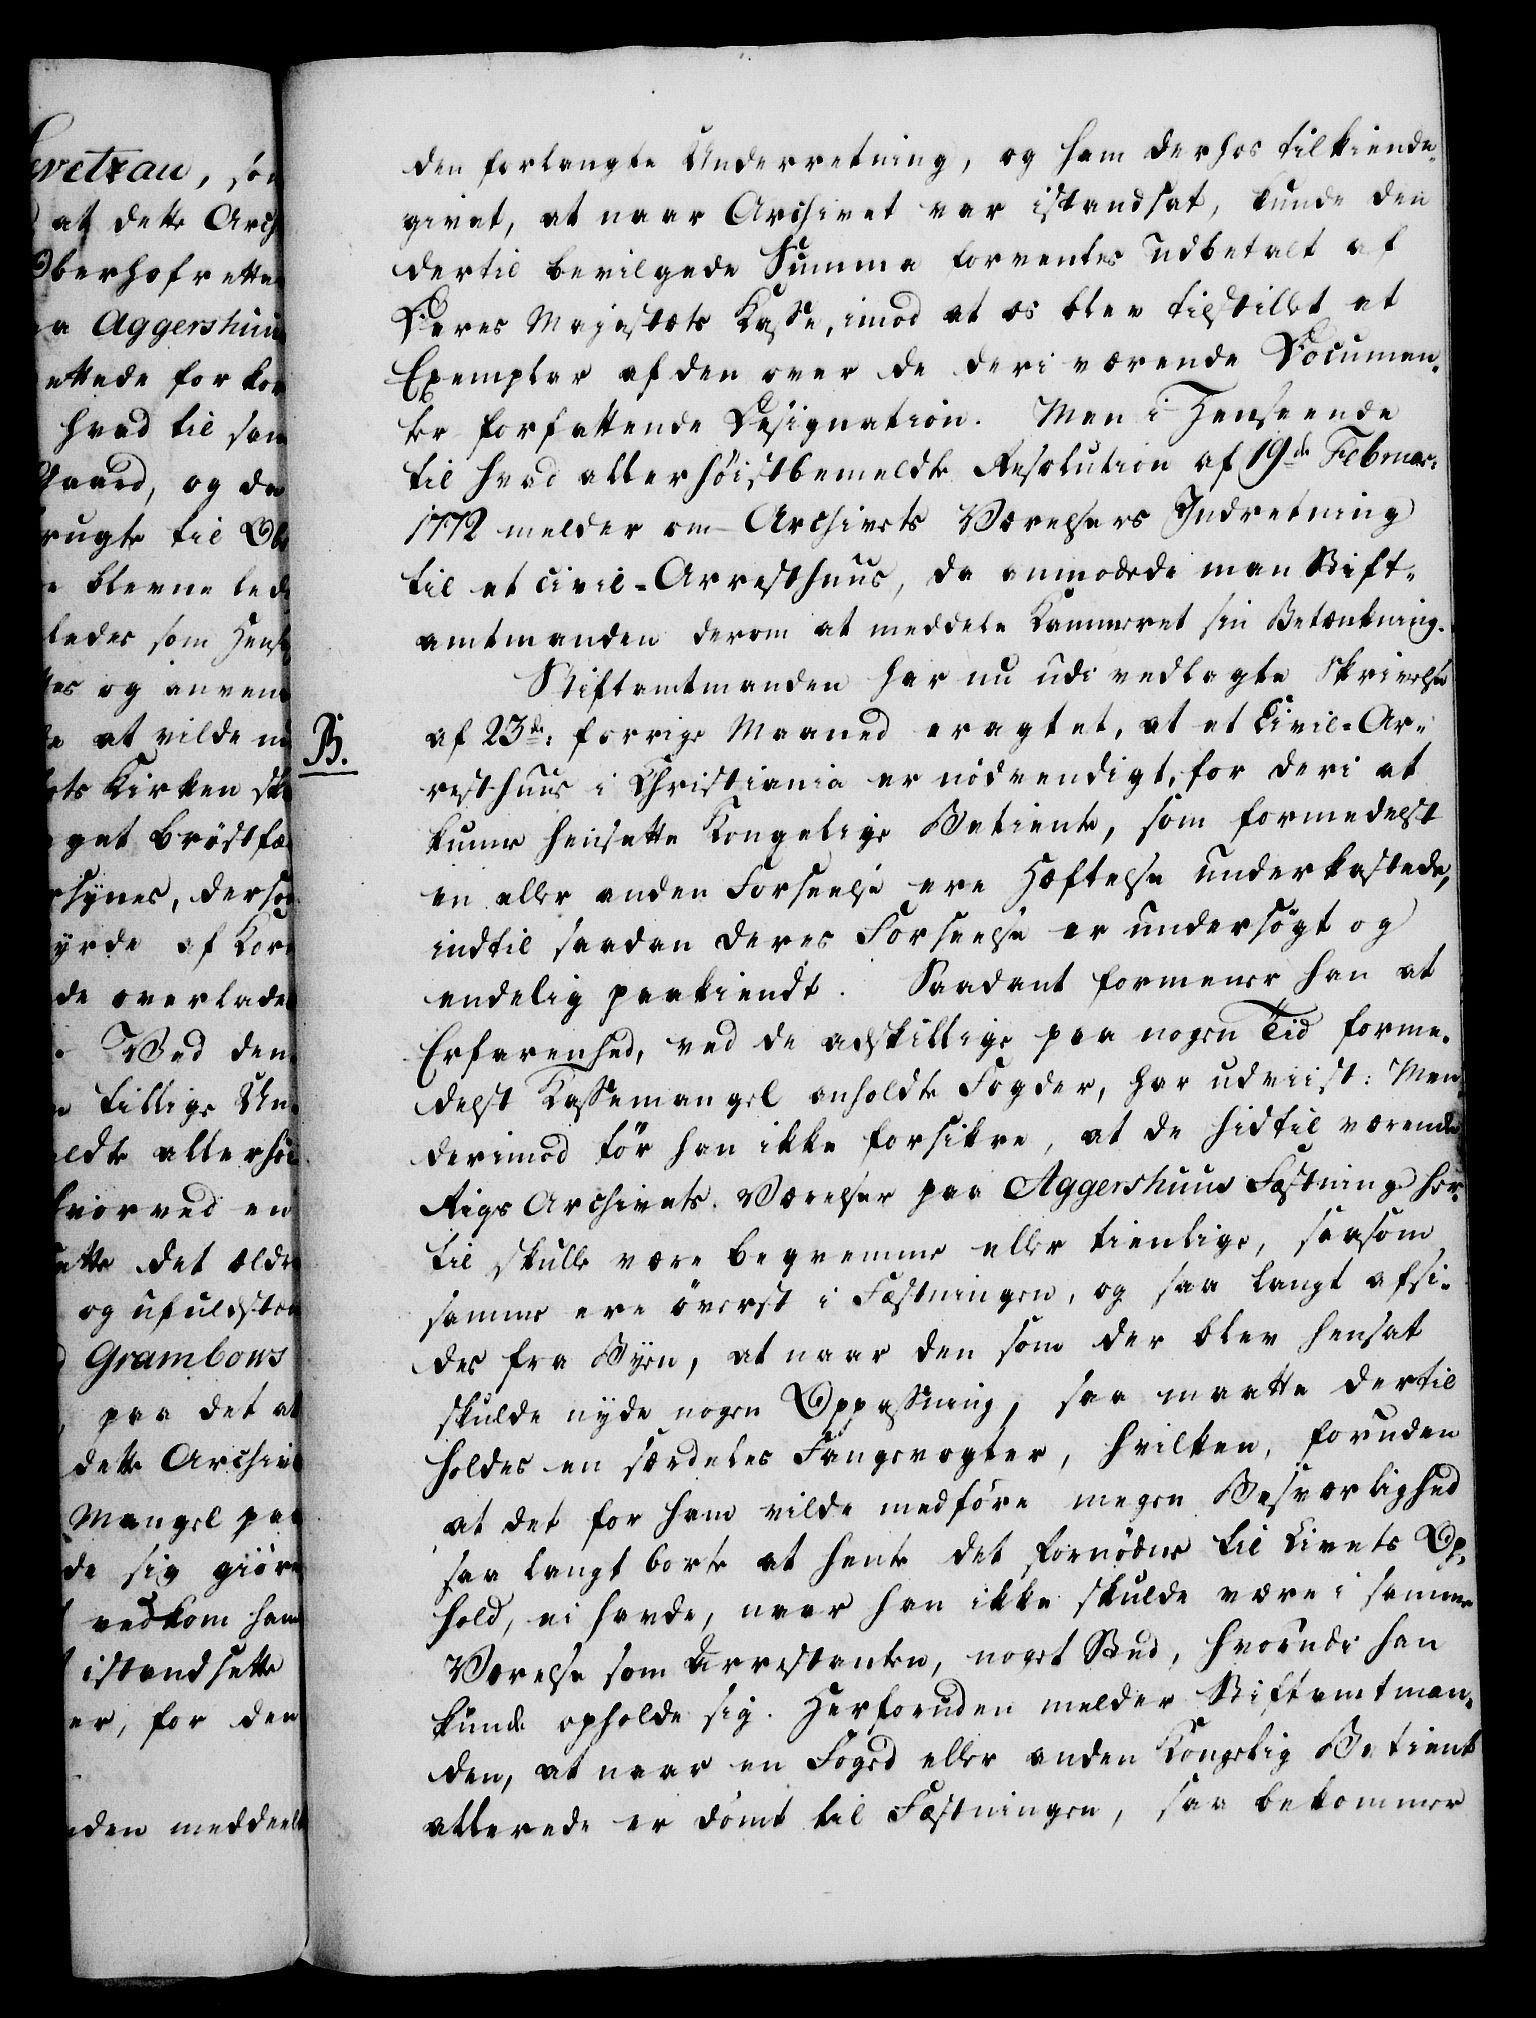 den forlangte Underretning, og ham derhos tilkiende-
givet, at naar Archivet var istandsat, kunde den
dertil bevilgede Summa forventes udbetalt af
Deres Majestæts Kasse, imod at os blev tilstillet et
Exemplar af den over de deri værende Documen-
ter forfattende Designation. Men i Henseende
til hvad allerhöistbemeldte Resolution af 19de Februar:
1772 melder om Archivets Værelsers Indretning
til et civil-Arresthuus, da anmodede man Stift-
amtmanden derom at meddele Kammeret sin Betænkning.
Stiftamtmanden har nu udi vedlagte Skrivelse
B. af 23de: forrige Maaned eragtet, at et Civil-Ar-
resthuus i Christiania er nödvendigt, for deri at
kunne hensætte Kongelige Betiente, som formedelst
en eller anden Forseelse ere Hæftelse underkastede,
indtil saadan deres Forseelse er undersögt og
endelig paakiendt. Saadant formener han at
Erfarenhed, ved de adskillige paa nogen Tid forme-
delst Kassemangel anholdte Fogder, har udviist: Men
derimod tör han ikke forsikre, at de hidtil værende
Rigs Archivets Værelser paa Aggershuus Fæstning her-
til skulle være beqvemme eller tienlige, saasom
samme ere överst i Fæstningen, og saa langt afsi-
des fra Byen, at naar den som der blev hensat
skulde nyde nogen Oppassning, saa maatte dertil
holdes en særdeles Fangevogter, hvilken, foruden
at det for ham vilde medföre megen Besværlighed
saa langt borte at hente det fornödne til Livets Op-
hold, ei havde, naar han ikke skulde være i samme
Værelse som Arrestanten, noget Sted, hvorudi han
kunde opholde sig. Herforuden melder Stiftamtman-
den, at naar en Foged eller anden Kongelig Betient
allerede er dömt til Fæstningen, saa bekommer